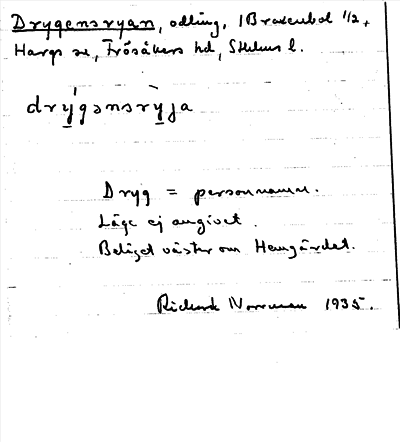 Drygensryan, odling, 1 Brasenbol 1/2,
Hargs sn, Frösåkers hd, Sthlms l.
drýgənsrỳja
Dryg = personnamn.
Läge ej angivet.
Beläget väster om Hemgärdet.
Rickard Norrman 1935.